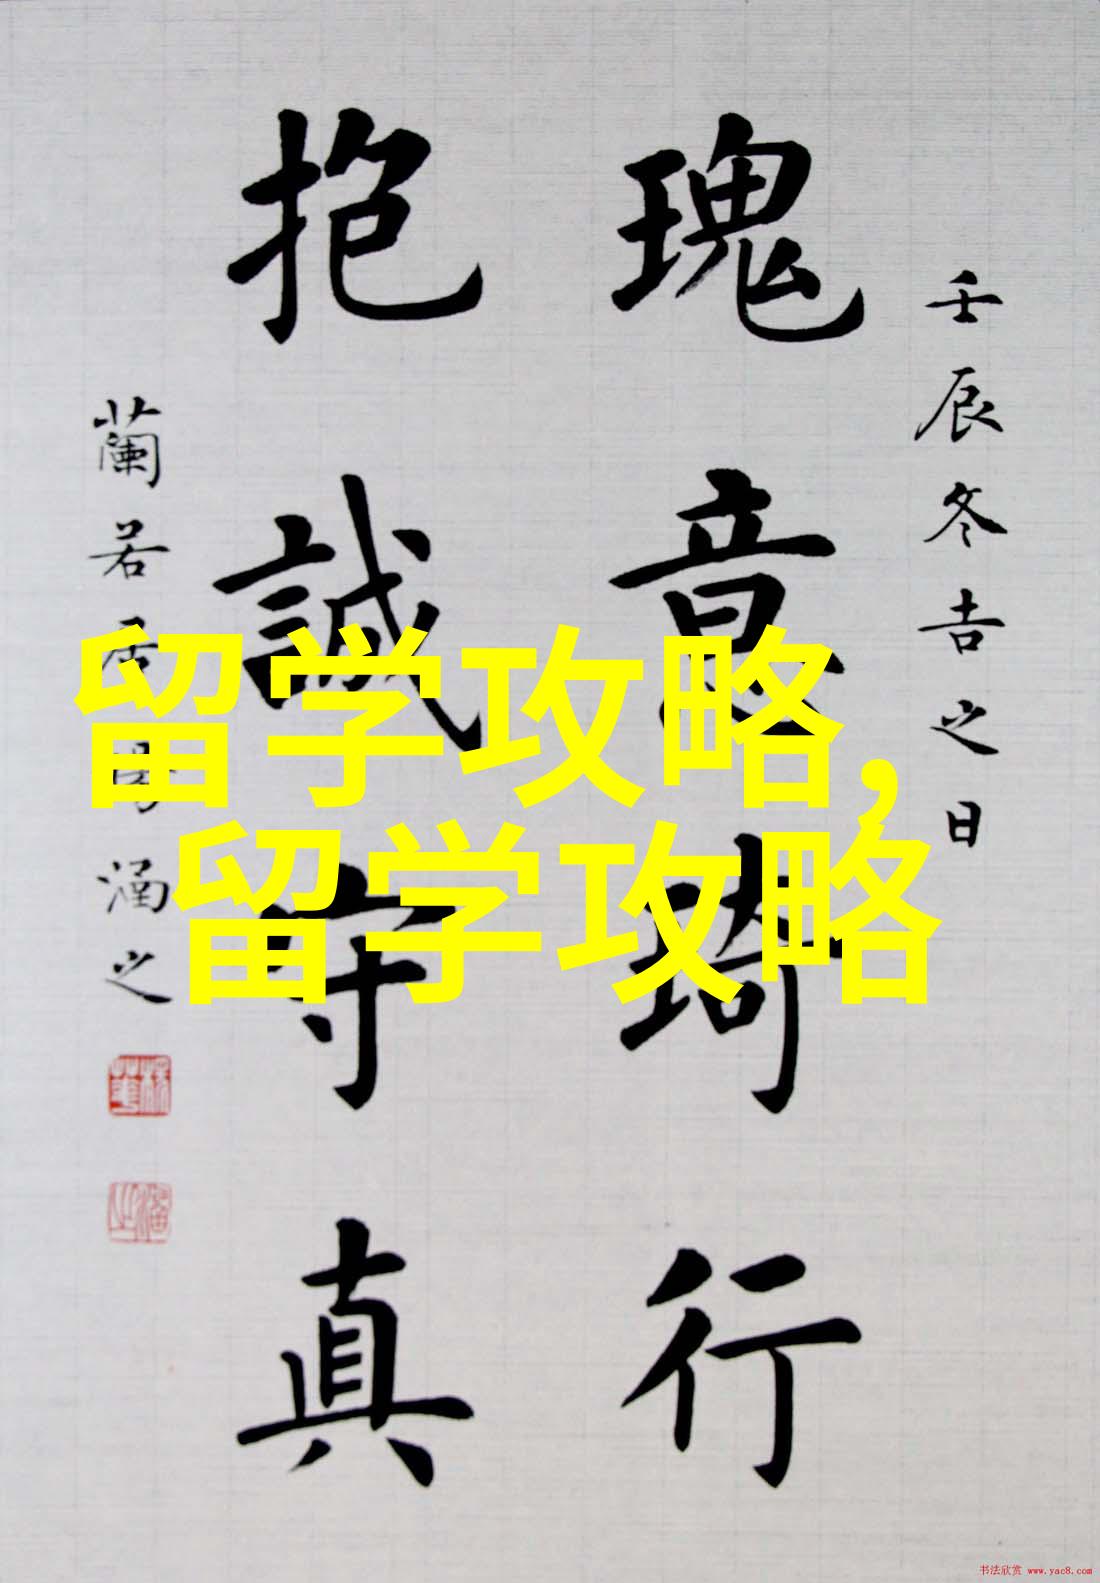 壬辰冬吉之日
瑰意琦行
抱誠守真
蘭若居涵之
留学攻略,
留学攻略
书法欣赏 www.yac8.com